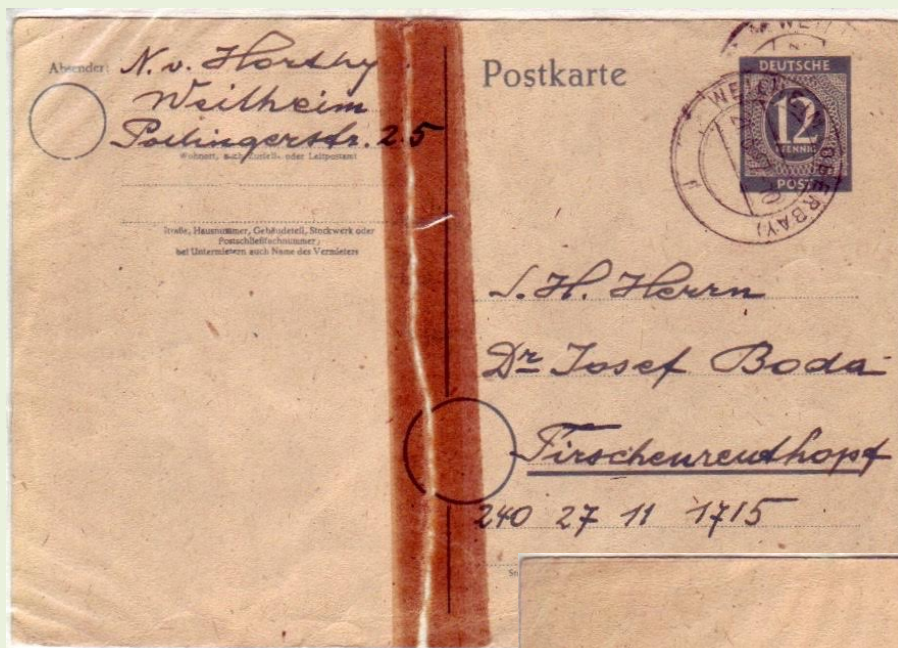 Absender: N. v. Horthy
Weilheim
Pollingerstr. 25
Wohnort, auch Zustell- oder Leitpostamt
Straße, Hausnummer, Gebäudeteil, Stockwerk oder
Postschließfachnummer;
bei Untermietern auch Name des Vermieters
Postkarte
DEUTSCHE
12
PFENNIG
POST
WEILHEIM (OBERBAY)
S. H. Herrn
Dr Josef Boda
Tirschenreuthopf
240 27 11 1715